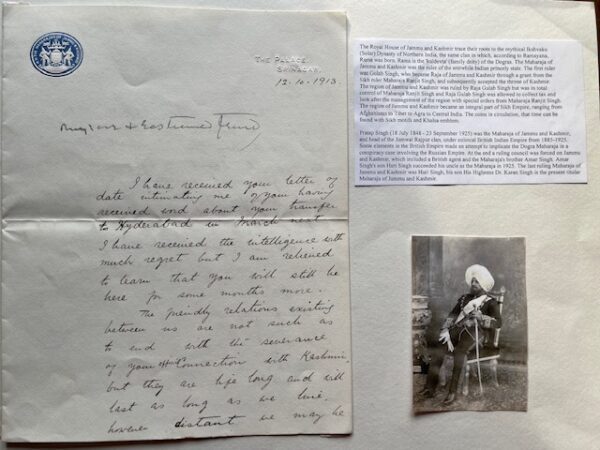 THE PALACE,
SRINAGAR.
12-10-1913
My dear & Esteemed Friend
I have received your letter of
date intimating me of your having
received word about your transfer
to Hyderabad in March next.
I have received the intelligence with
much regret but I am relieved
to learn that you will still be
here for some months more.
The friendly relations existing
between us are not such as
to end with the severance
of your Connection with Kashmir
but they are life long and will
last as long as we live.
however distant we may be
The Royal House of Jammu and Kashmir trace their root to the mythical Ikshvaku
(Solar) Dynasty of Northern India, the same clan in which, according to Ramayana,
Rama was born. Rama is the 'kuldevta' (family deity) of the Dogras. The Maharaja of
Jammu and Kashmir was the ruler of the erstwhile Indian princely state. The first ruler
was Gulab Singh, who became Raja of Jammu and Kashmir through a grant from the
Sikh ruler Maharaja Ranjit Singh, and subsequently accepted the throne of Kashmir.
The region of Jammu and Kashmir was ruled by Raja Gulab Singh but was in total
control of Maharaja Ranjit Singh and Raja Gulab Singh was allowed to collect tax and
look after the management of the region with special orders from Maharaja Ranjit Singh.
The region of Jammu and Kashmir became an integral part of Sikh Empire, ranging from
Afghanistan to Tibet to Agra to Central India. The coins in circulation, that time can be
found with Sikh motifs and Khalsa emblem.
Pratap Singh (18 July 1848 – 23 September 1925) was the Maharaja of Jammu and Kashmir,
and head of the Jamwal Rajput clan, under colonial British Indian Empire from 1885-1925.
Some elements in the British Empire made an attempt to implicate the Dogra Maharaja in a
conspiracy case involving the Russian Empire. At the end a ruling council was forced on Jammu
and Kashmir, which included a British agent and the Maharaja's brother Amar Singh. Amar
Singh's son Hari Singh succeeded his uncle as the Maharaja in 1925. The last ruling Maharaja of
Jammu and Kashmir was Hari Singh, his son His Highness Dr. Karan Singh is the present titular
Maharaja of Jammu and Kashmir.